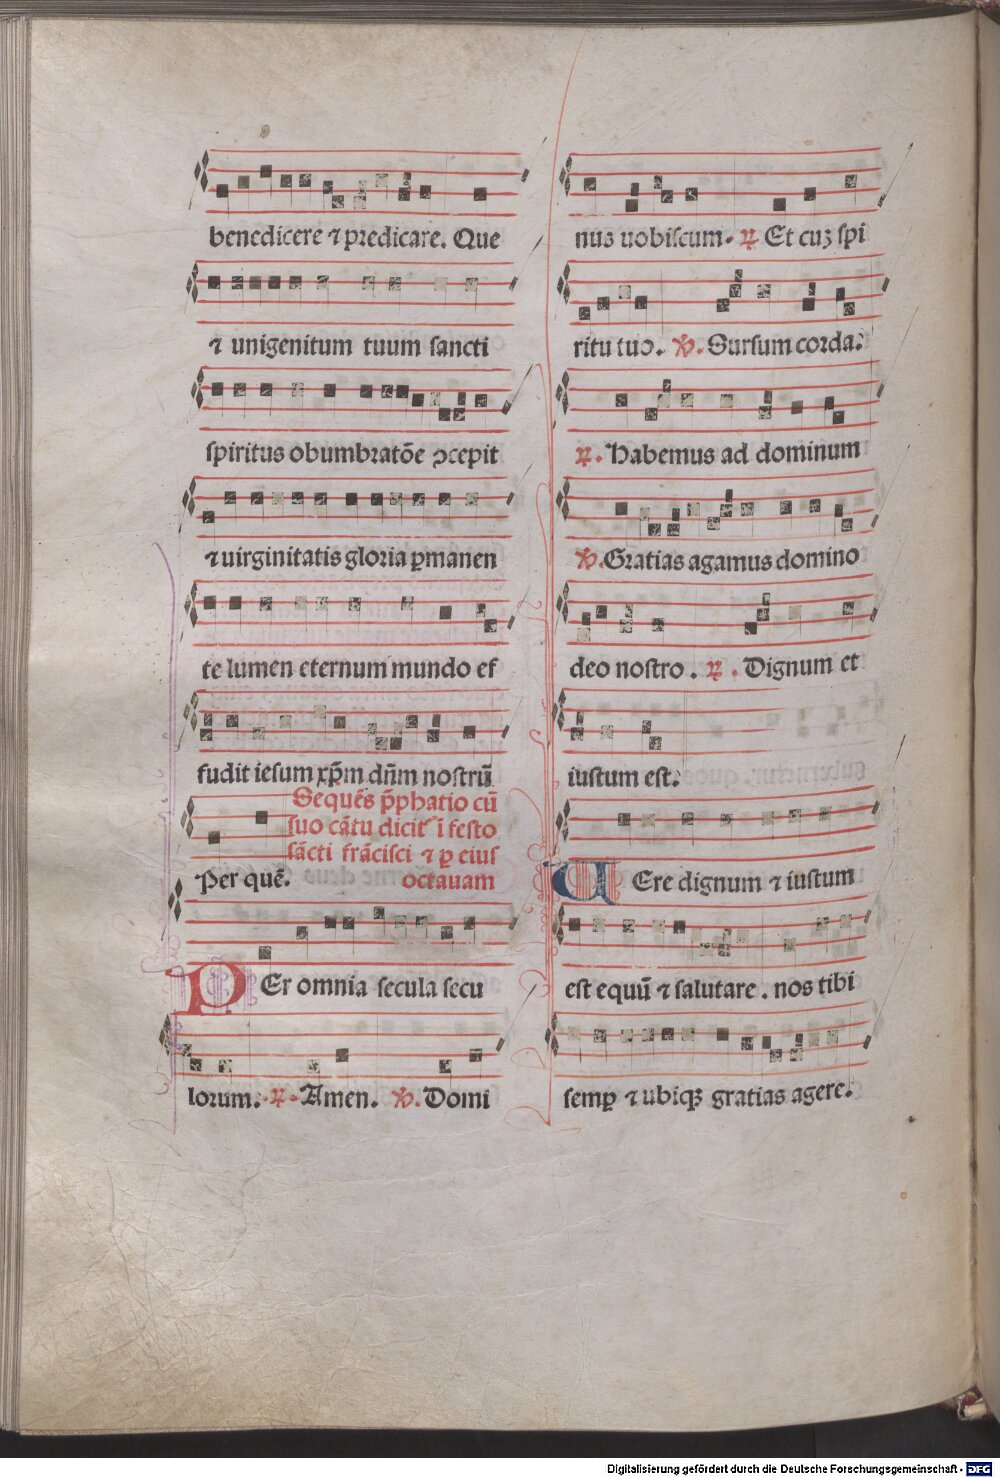 benedicere ⁊ predicare. Que
⁊ unigenitum tuum sancti
spiritus obumbratōe ꝯcepit
⁊ uirginitatis gloria ꝑmanen
te lumen eternum mundo ef
fudit iesum xp̄m dn̄m nostrū
Sequēs p̄phatio cū
suo cātu dicit̉ ī festo
sācti frācisci ⁊ ꝑ eius
Per quē.
octauam
PEr omnia secula secu
lorum. ℟. Amen. ℣. Domi
nus uobiscum. ℟. Et cuꝫ spi
ritu tuo. ℣. Sursum corda.
℟. Habemus ad dominum
℣. Gratias agamus domino
deo nostro. ℟. Dignum et
iustum est.
UEre dignum ⁊ iustum
est equū ⁊ salutare. nos tibi
semꝑ ⁊ ubiqꝫ gratias agere.
Digitalisierung gefördert durch die Deutsche Forschungsgemeinschaft - DFG